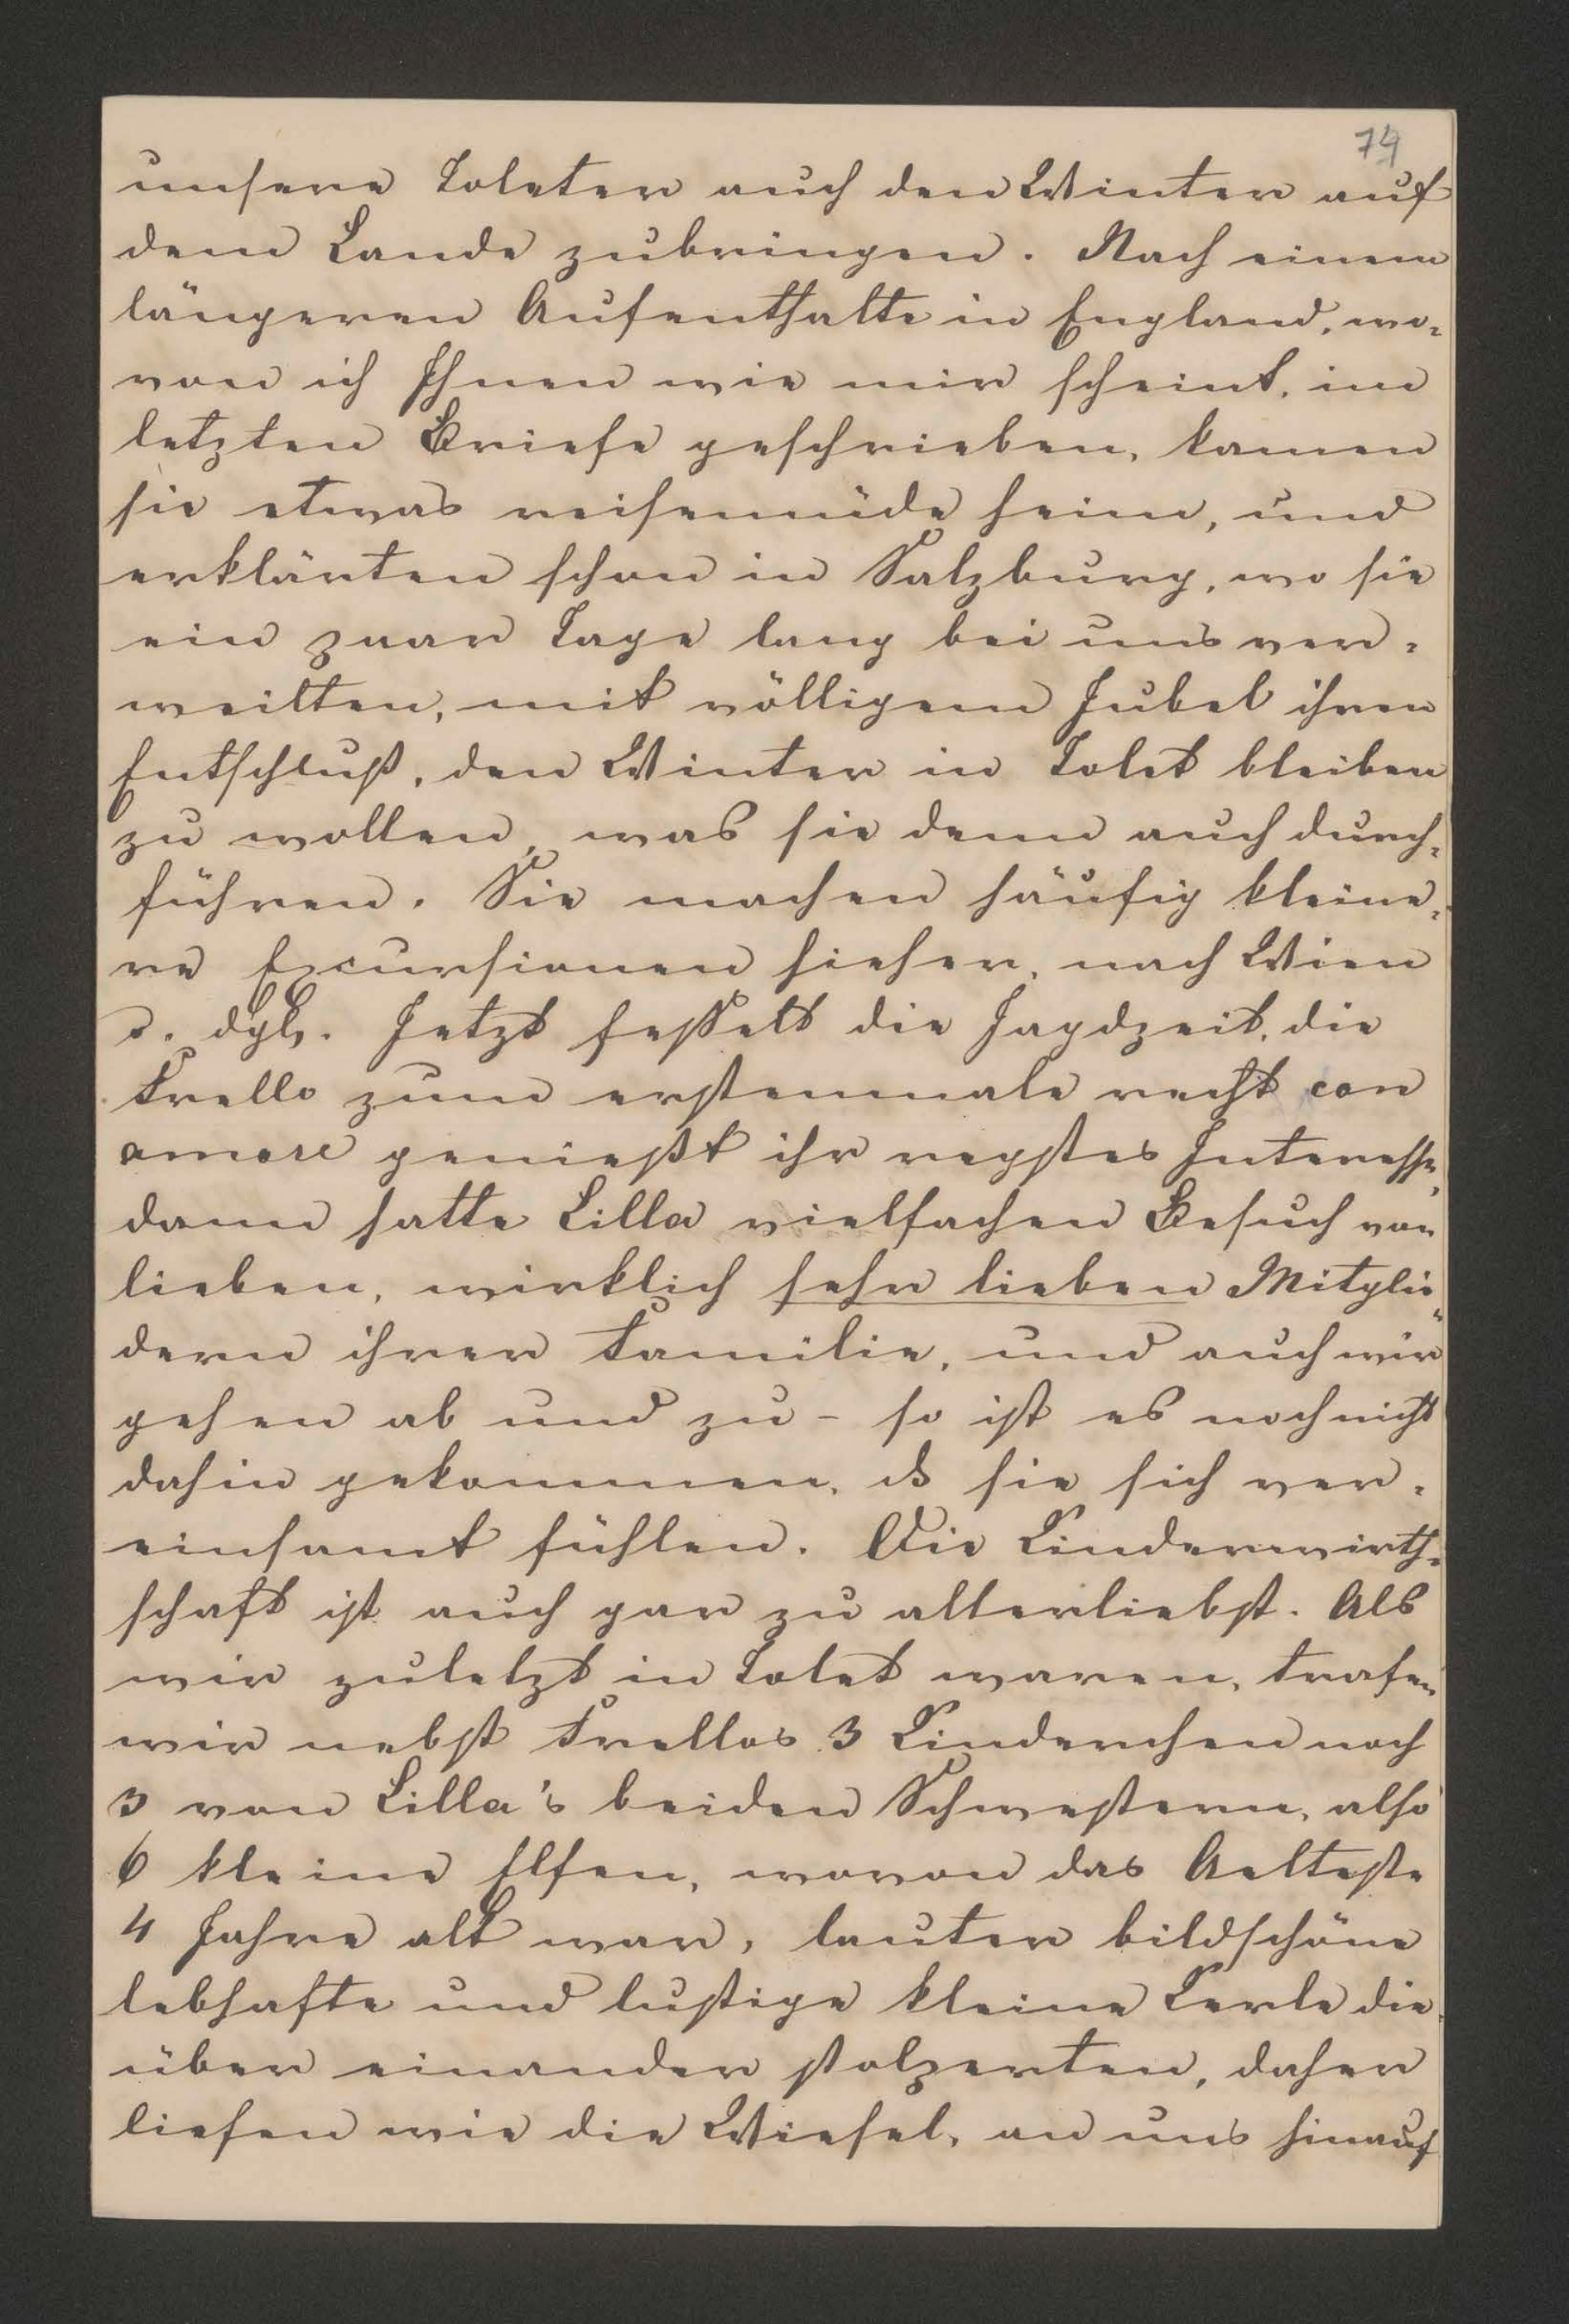 74
unsere Toleter auch den Winter auf
dem Lande zubringen. Nach einem
längeren Aufenthalte in England, wo-
von ich Ihnen wie mir scheint, im
letzten Briefe geschrieben, kamen
sie etwas reisemüde heim, und
erklärten schon in Salzburg, wo sie
ein paar Tage lang bei uns ver-
weilten, mit völligem Jubel ihren
Entschluß, den Winter in Tolet bleiben
zu wollen, was sie denn auch durch-
führen. Sie machen häufig kleine-
re Excursionen hieher, nach Wien
u. dgl. Jetzt fesselt die Jagdzeit, die
Frello zum erstenmale recht con
amore genießt ihr regstes Interesse,
dann hatte Lilla vielfachen Besuch von
lieben, wirklich sehr lieben Mitglie-
dern ihrer Familie, und auch wir
gehen ab und zu - so ist es noch nicht
dahin gekommen, dß sie sich ver-
einsamt fühlen. Die Kinderwirth-
schaft ist auch gar zu allerliebst. Als
wir zuletzt in Tolet waren, trafen
wir nebst Frellos 3 Kinderchen noch
3 von Lilla's beiden Schwestern, also
6 kleine Elfen, wovon das Aelteste
4 Jahre alt war, lauter bildschöne
lebhafte und lustige kleine Kerle die
über einander stolperten, daher
liefen wie die Wiesel, an uns hinauf